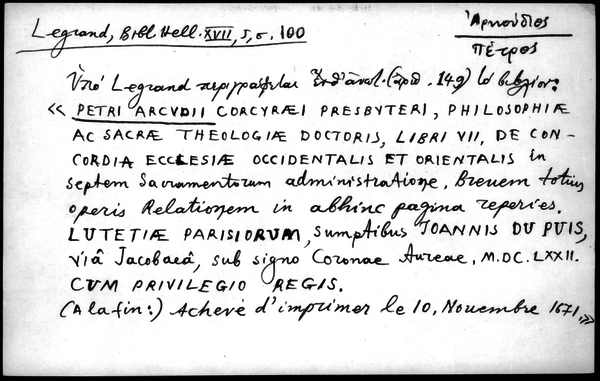 Legrand, Bibl. Hell. XVII, 5, σ. 100
Ἀρκούδιος
Πέτρος
Ὑπό Legrand περιγράφεται (ἀριθ. 149) τό βιβλίον:
« PETRI ARCVDII CORCYRÆI PRESBYTERI, PHILOSOPHIÆ
AC SACRÆ THEOLOGIÆ DOCTORIS, LIBRI VII, DE CON-
CORDIA ECCLESIÆ OCCIDENTALIS ET ORIENTALIS in
septem Sacramentorum administratione. Breuem totius
operis Relationem in abhinc pagina reperies.
LUTETIÆ PARISIORUM, sumptibus IOANNIS DU PUIS,
viâ Jacobaeâ, sub signo Coronae Aureae, M.DC.LXXII.
CUM PRIVILEGIO REGIS.
(A la fin:) Achevé d'imprimer le 10, Nouembre 1671. »